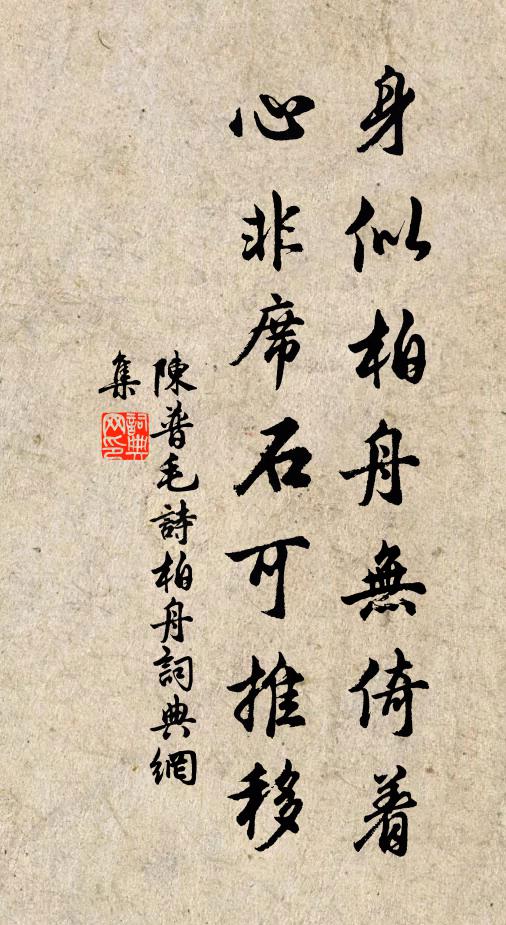 身似柏舟無倚着
心非席石可推移
陳普毛詩柏舟詞典網
集
詞典網印